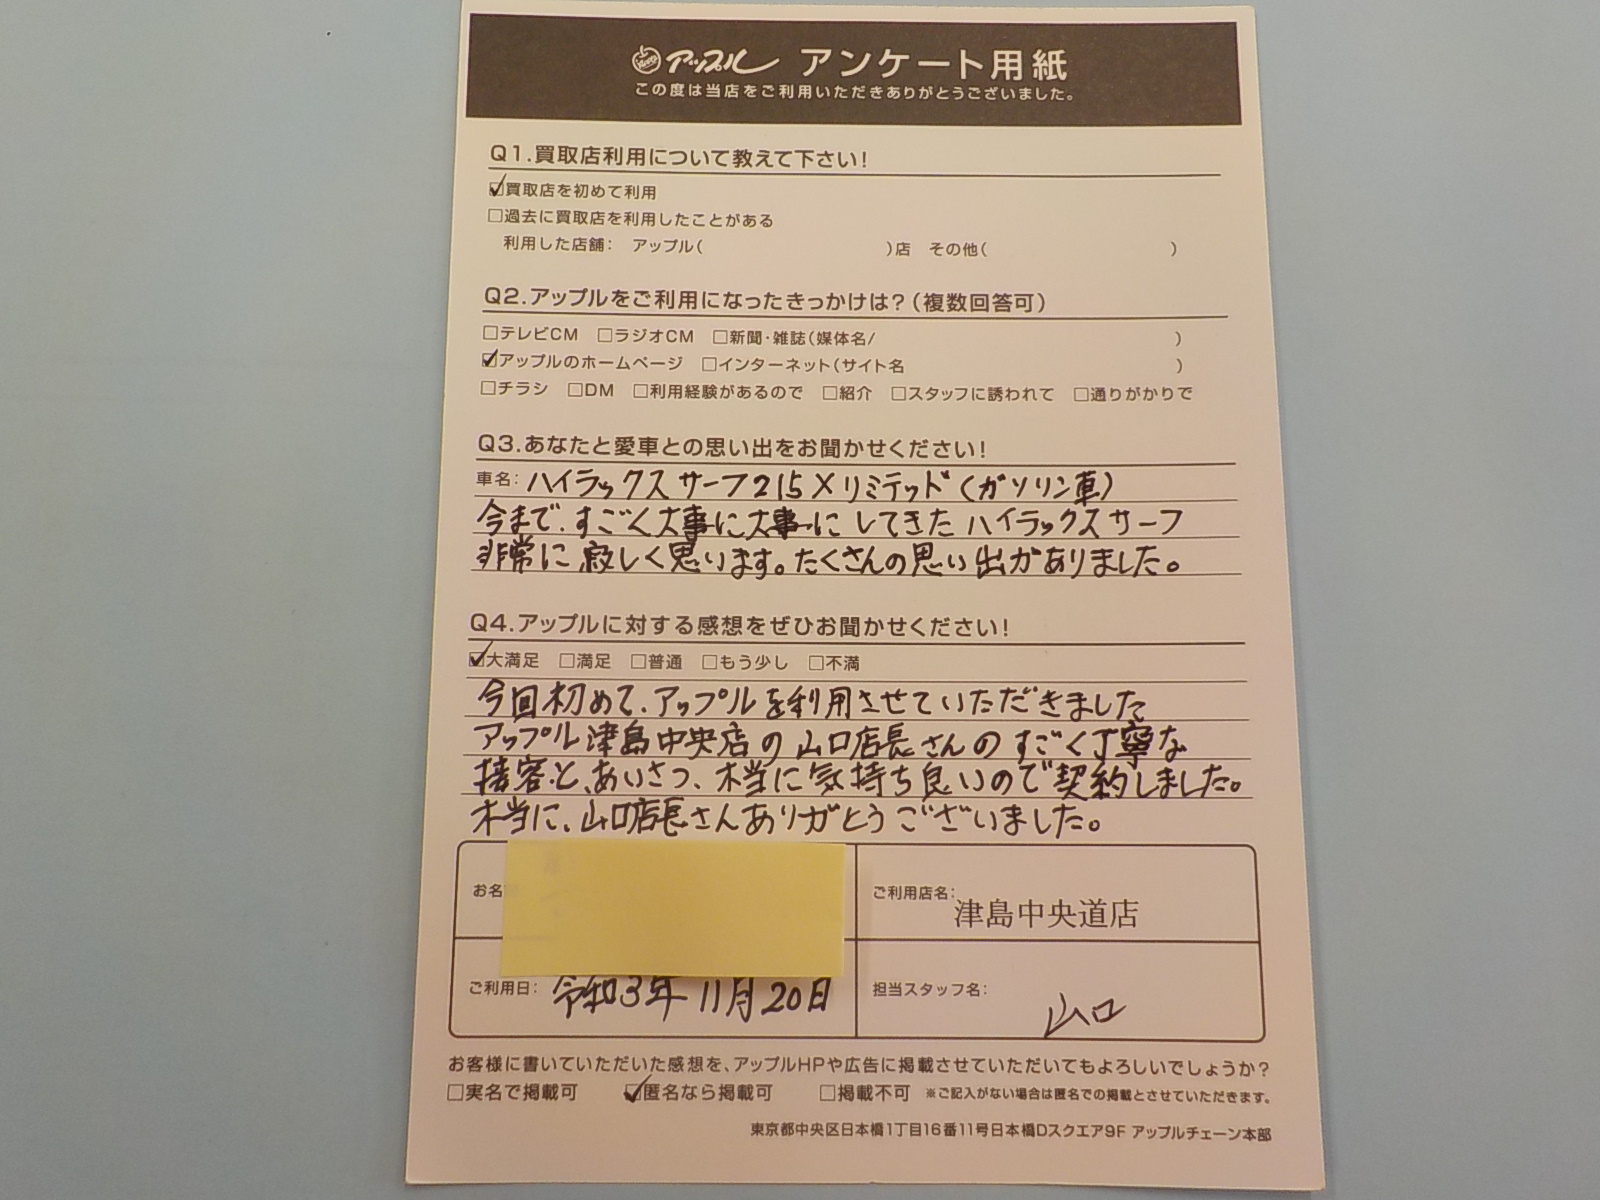 アップル アンケート用紙
この度は当店をご利用いただきありがとうございました。
Q1.買取店利用について教えて下さい!
☑買取店を初めて利用
□過去に買取店を利用したことがある
利用した店舗: アップル( )店 その他( )
Q2.アップルをご利用になったきっかけは?(複数回答可)
□テレビCM □ラジオCM □新聞・雑誌(媒体名/ )
☑アップルのホームページ □インターネット(サイト名 )
□チラシ □DM □利用経験があるので □紹介 □スタッフに誘われて □通りがかりで
Q3.あなたと愛車との思い出をお聞かせください!
車名: ハイラックスサーフ215Xリミテッド(ガソリン車)
今まで、すごく大事に大事にしてきたハイラックスサーフ
非常に寂しく思います。たくさんの思い出がありました。
Q4.アップルに対する感想をぜひお聞かせください!
☑大満足 □満足 □普通 □もう少し □不満
今回初めて、アップルを利用させていただきました
アップル津島中央店の山口店長さんのすごく丁寧な
接客と、あいさつ、本当に気持ち良いので契約しました。
本当に、山口店長さんありがとうございました。
お名
ご利用店名: 津島中央道店
ご利用日: 令和3年11月20日
担当スタッフ名: 山口
お客様に書いていただいた感想を、アップルHPや広告に掲載させていただいてもよろしいでしょうか?
□実名で掲載可 ☑匿名なら掲載可 □掲載不可 ※ご記入がない場合は匿名での掲載とさせていただきます。
東京都中央区日本橋1丁目16番11号日本橋Dスクエア9F アップルチェーン本部